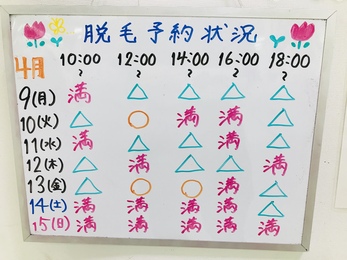 脱毛予約状況
4月 10:00〜 12:00〜 14:00〜 16:00〜 18:00〜
9(月) 満 △ △ △ △
10(火) △ ○ 満 満 △
11(水) 満 △ △ 満 △
12(木) △ 満 △ △ 満
13(金) △ ○ ○ 満 △
14(土) 満 満 満 満 △
15(日) 満 満 満 満 満